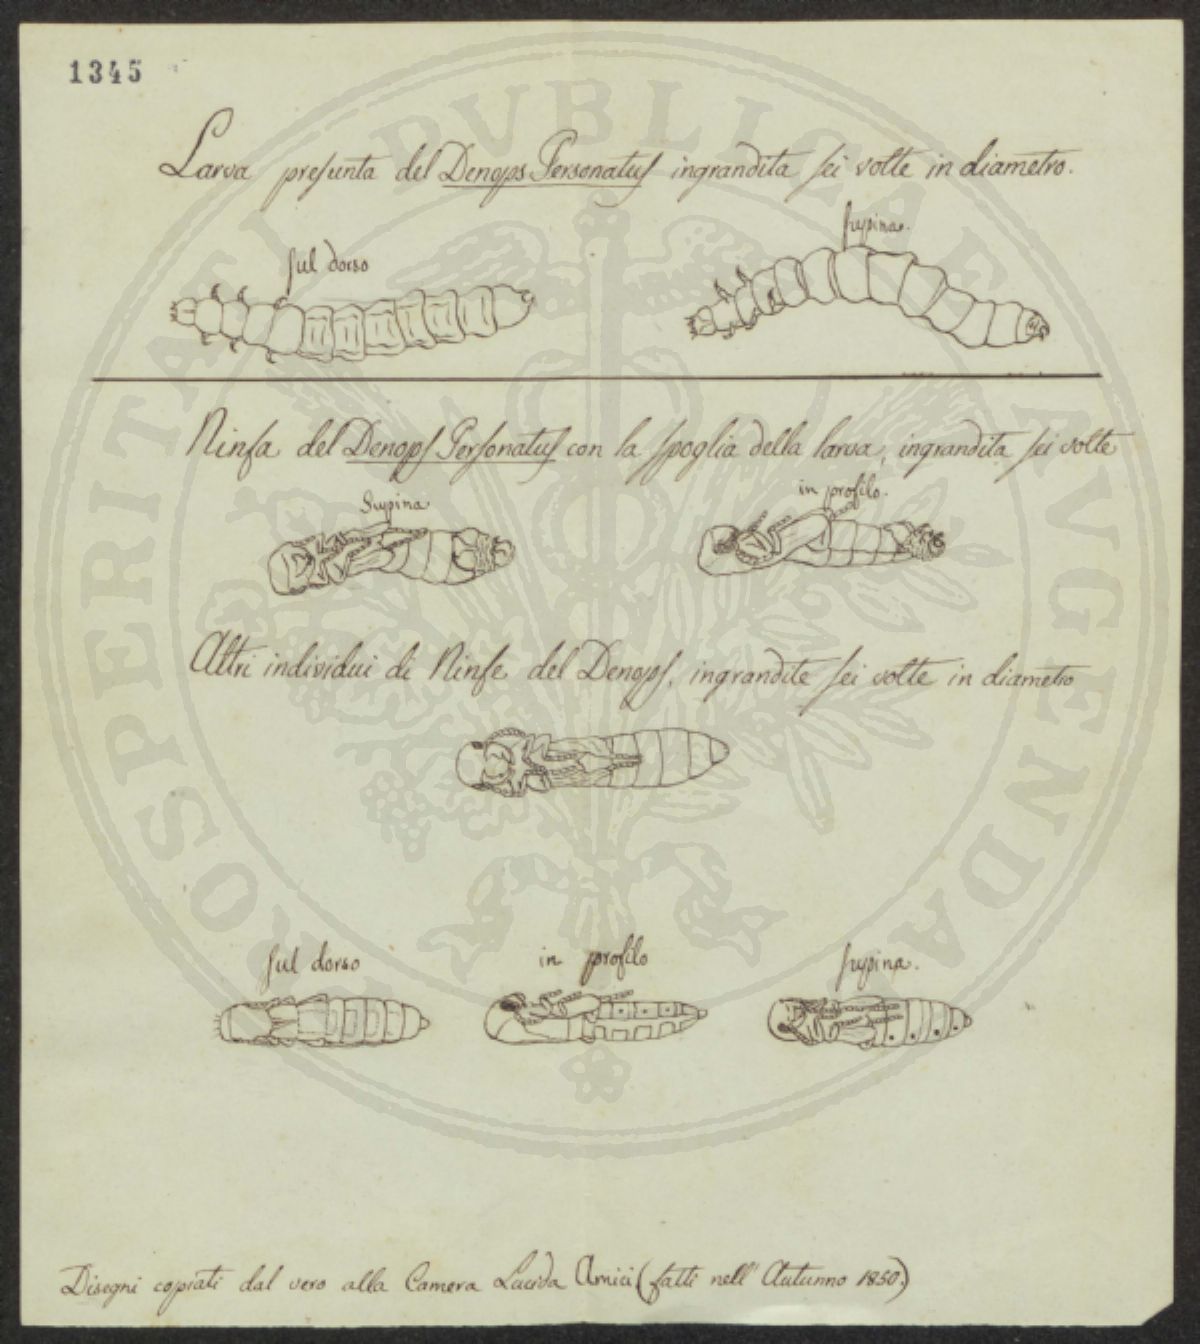 1345
Larva presunta del Denops Personatus ingrandita sei volte in diametro.
sul dorso
supina.
Ninfa del Denops Personatus con la spoglia della larva, ingrandita sei volte
Supina
in profilo.
Altri individui di Ninfe del Denops, ingrandite sei volte in diametro
sul dorso
in profilo
supina.
Disegni copiati dal vero alla Camera Lucida Amici (fatti nell' Autunno 1850.)
PROSPERITATI PVBLICAE AVGENDAE